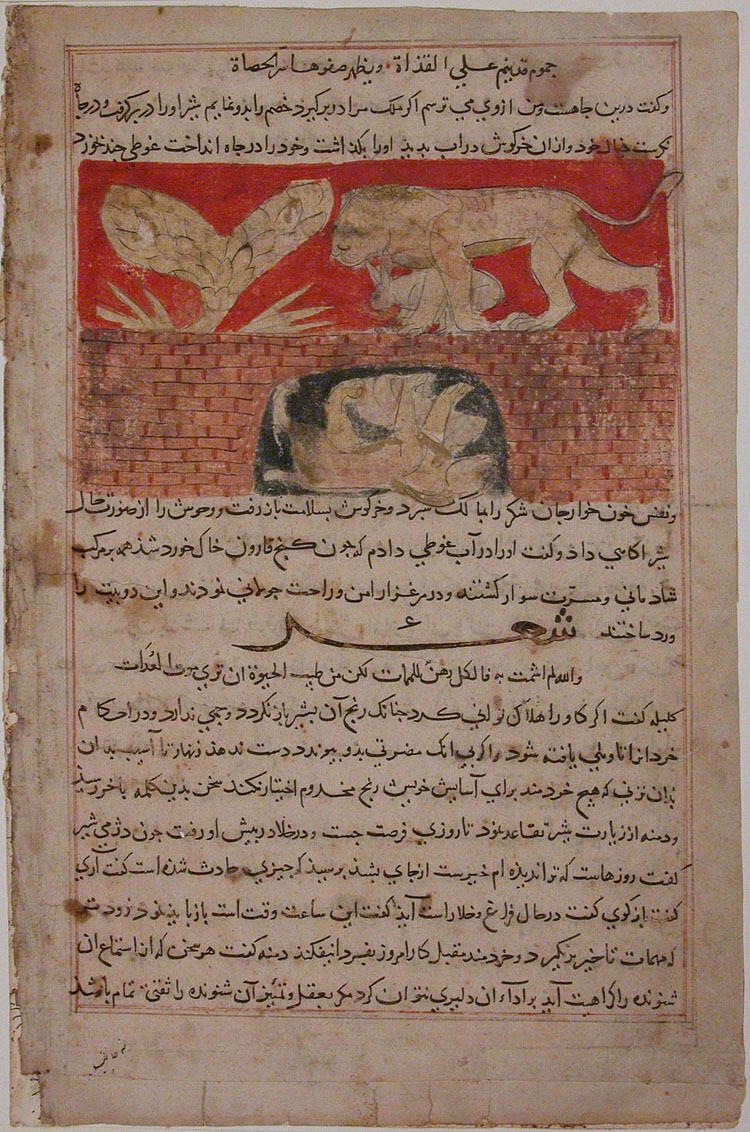 جموم قد ينم على القذاة ويظهر صفوها سر الحصاة
وکفت درین جاهست ومن از وی می ترسم اکر ملک مرا در بر کیرد خصم را بدو نمایم شیر او را در بر کرفت و در جاه
نکرست خیال خود و از ان خرکوش در اب بدید او را بکذاشت و خود را در جاه انداخت غوطی جند خورد
و نفس خون خوار جان شکر را بمالک سبرد و خرکوش بسلامت باز رفت و وحوش را از صورت حال
شیر اکاهی داد و کفت او را در آب غوطی دادم که جون کنج قارون خاک خورد شد همه بر مرکب
شادمانی و مسرت سوار کشتند و در مرغزار امن و راحت جولانی نمودند و این دو بیت را
ورد ساختند شعر
والله لم اشمت به فالكل رهن للممات لكن من طيب الحيوة ان ترى موت العداة
کلیله کفت اکر کاو را هلاک توانی کرد جنانک رنج آن بشیر باز نکردد وجهی ندارد و در احکام
خرد انرا تاویلی یافته شود و اکر بی انک مضرتی بدو بیوندد دست ندهد زنهار تا آسیب بدان
نزنی که هیچ خردمند برای آسایش خویش رنج مخدوم اختیار نکند سخن بدین کلمه باخر رسید
و دمنه از زیارت شیر تقاعد نمود تا روزی فرصت جست و در خلا در بیش او رفت جون دژمی شیر
کفت روزهاست که ترا ندیده ام خیرست از جای بشد برسید که جیزی حادث شده است کفت آری
کفت باز کوی کفت در حال فراغ و خلا راست آید کفت این ساعت وقت است باز باید نمود زود
که مهمات تاخیر برنکیرد و خردمند مقبل کار امروز بفردا نیفکند دمنه کفت هر سخن که از استماع ان
شنونده را کراهیت آید بر اداء ان دلیری نتوان کرد مکر بعقل و تمییز آن شنونده را ثقتی تمام باشد